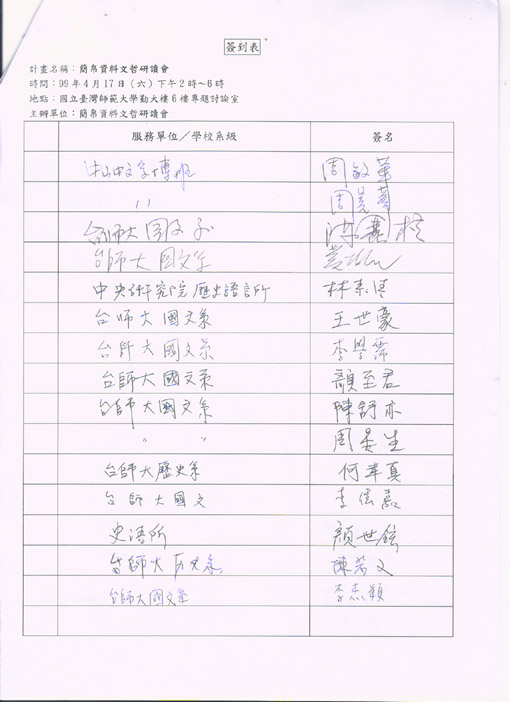 簽到表
計畫名稱：簡帛資料文哲研讀會
時間：99 年 4 月 17 日（六）下午 2 時～6 時
地點：國立臺灣師範大學勤大樓 6 樓專題討論室
主辦單位：簡帛資料文哲研讀會
服務單位／學校系級 簽名
中文 博班 周敏華
〃 周
台師大國文系
台師大國文系
中央研究院歷史語言所 林素清
台師大國文系 王世豪
台師大國文系 李學
台師大國文系 顏至君
台師大國文系 陳舒亦
〃 〃 周晏生
台師大歷史系 何 真
台師大國文 李
史語所 顏世鉉
台師大历史系 陳 文
台師大國文系 李 穎